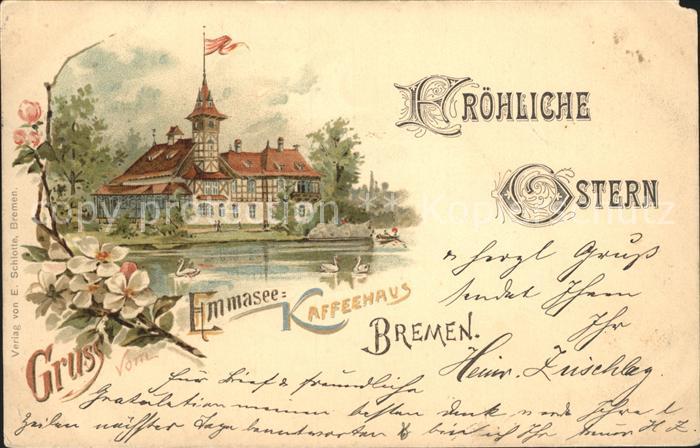 FRÖHLICHE
OSTERN
Verlag von E. Schlotte, Bremen.
Gruss vom
Emmasee-
KAFFEEHAUS
BREMEN.
& herzl Gruß
sendet Ihnen
Ihr
Heinr. Zuschlag.
für Brief & freundliche
Gratulation meinen besten Dank werde Ihre l
Zeilen nächster Tage beantworten & bin ich Ihr H Z
copyright protection